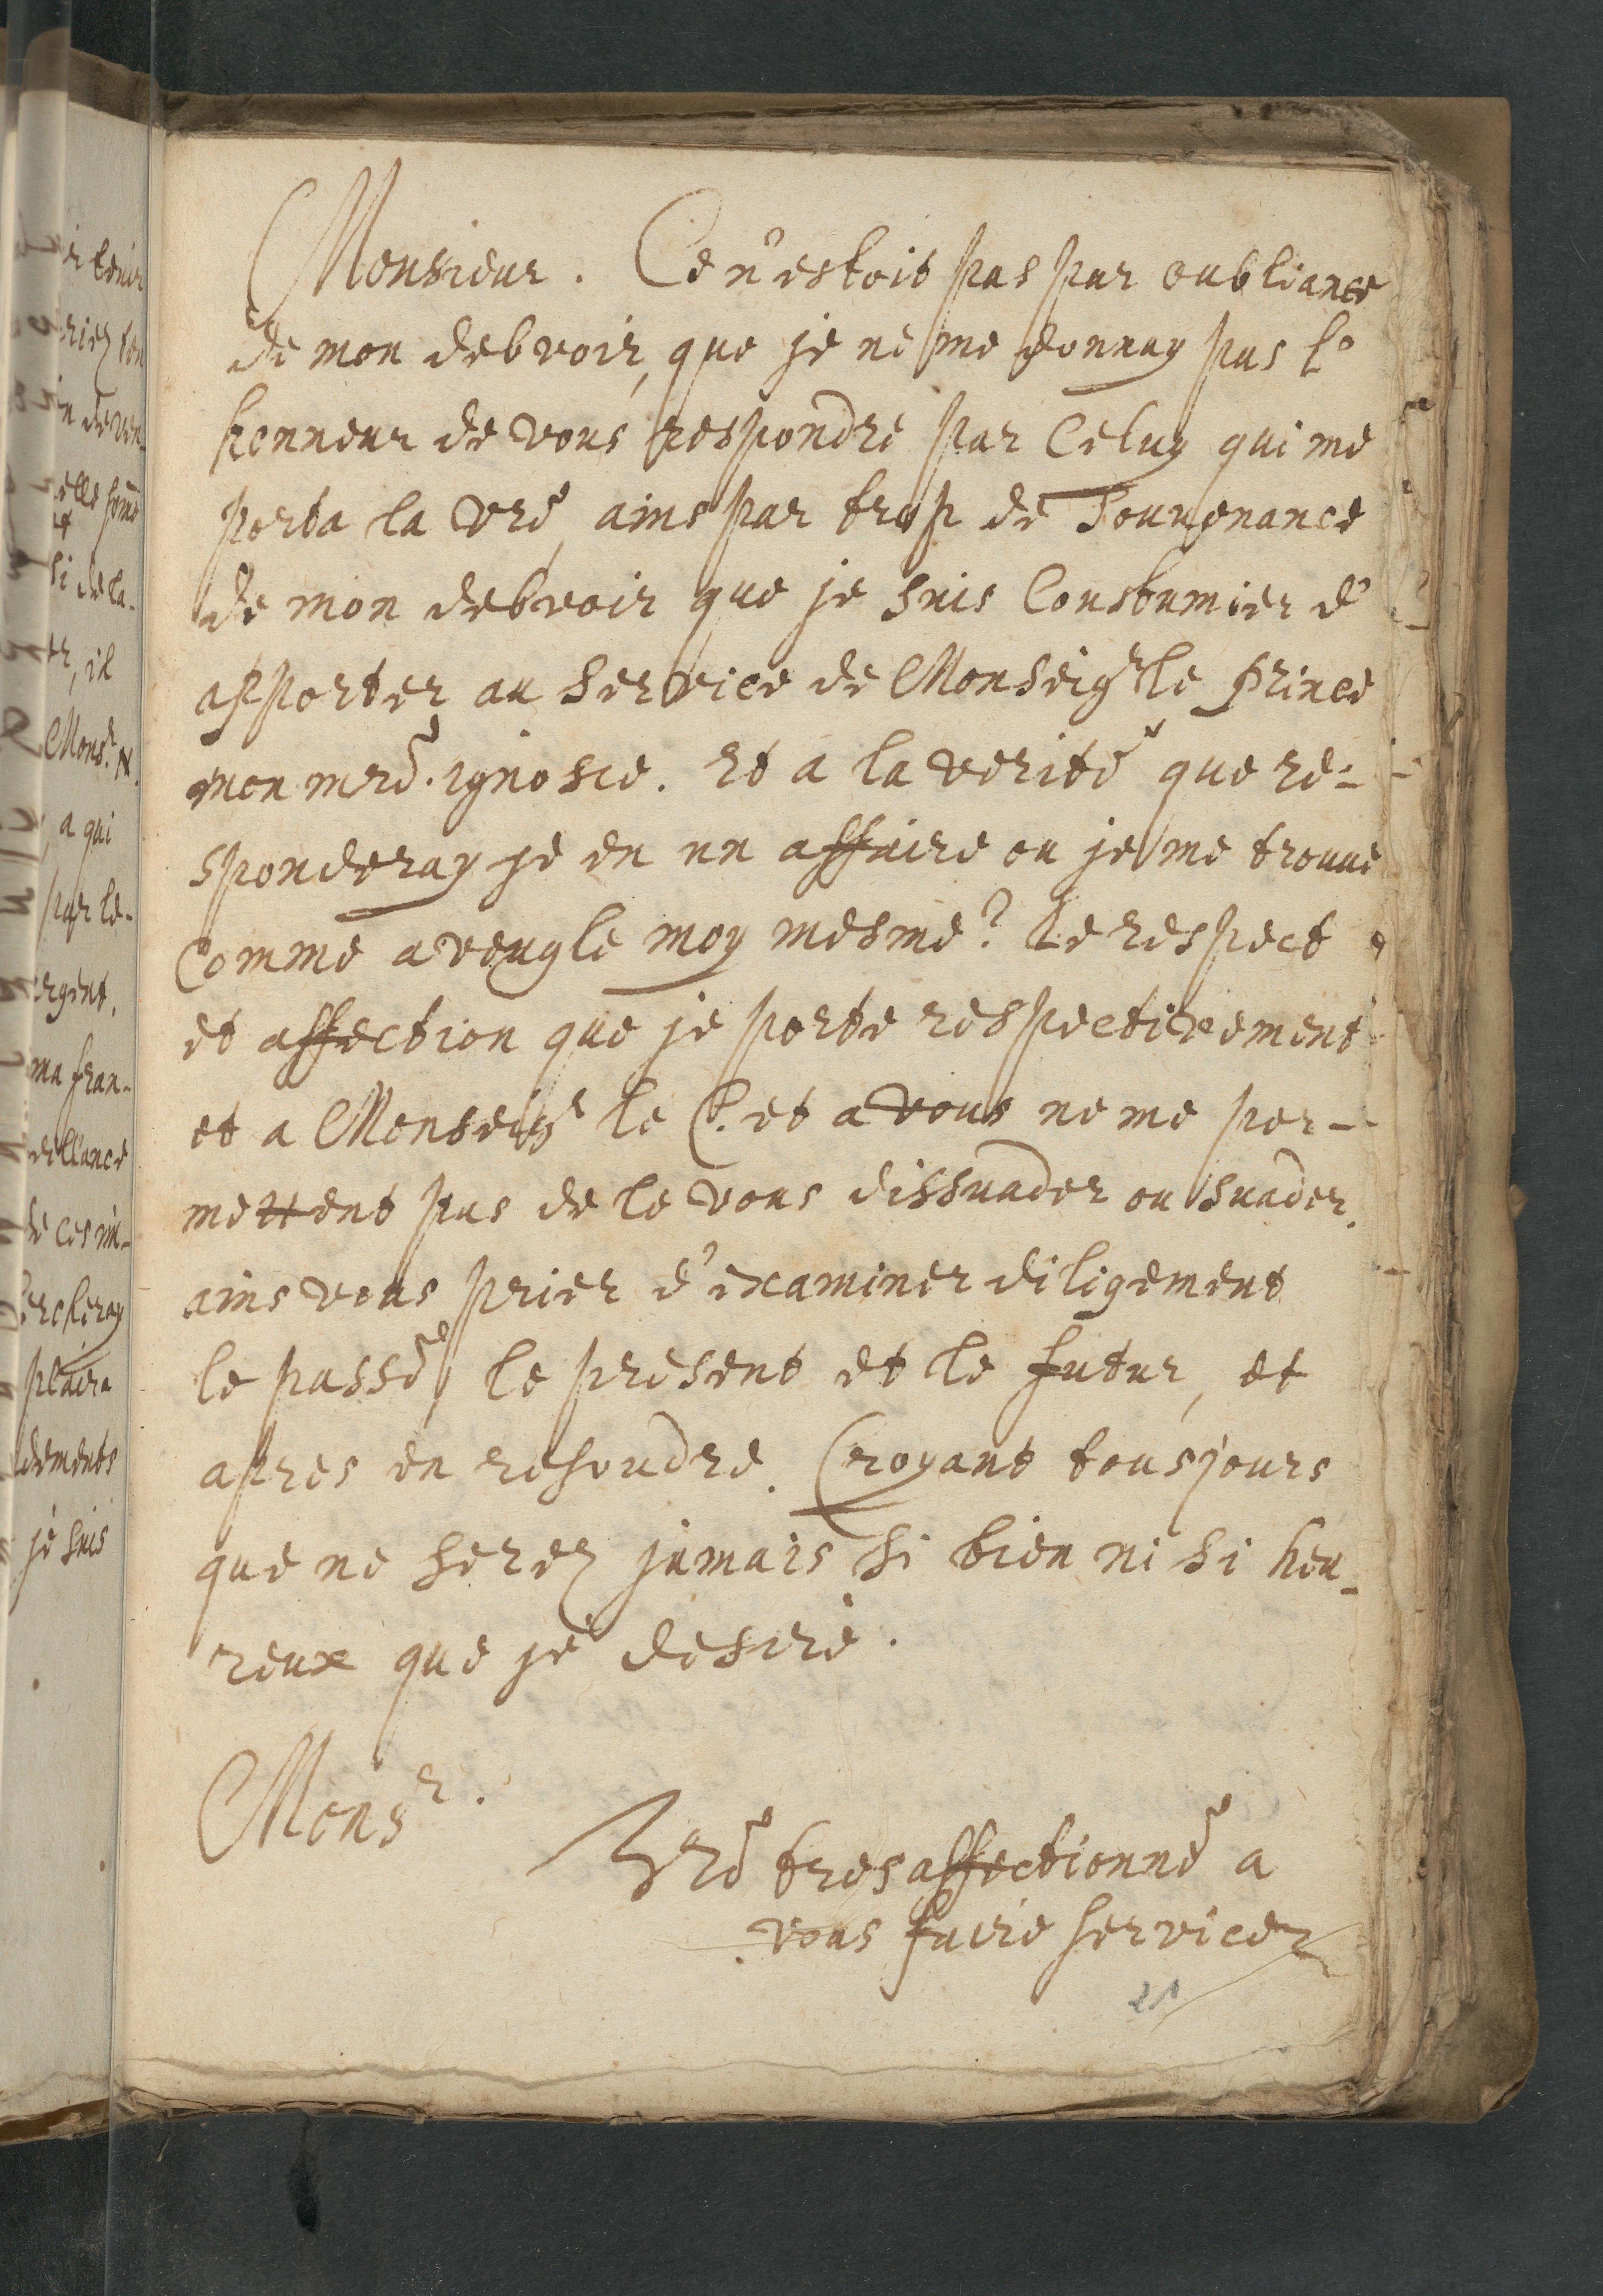 Monsieur. Ce n'estoit pas par oubliance
de mon debvoir, que je ne me donnay pas l'
honneur de vous respondre par Celuy qui me
porta la vrẽ, ains par trop de souuenance
de mon debvoir que je suis Coustumier d'
apporter au service de Monseigr le prince
mon mrẽ.
Et a la verité que re-
sponderay je en un affaire ou je me trouue
Comme aveugle moy mesme? Le respect
et affection que je porte respectivement
et a Monseigr le P. et a vous ne me per-
mettent pas de le vous dissuader ou suader.
ains vous prier d'examiner diligement
le passé, le present et le futur, et
apres en resoudre. Croyant tousjours
que ne serez jamais si bien ni si heu-
reux que je desire.
Monsr.
Vrẽ tres affectionné a
vous faire service
21
ri de la-
r, il
Monsr. N.
a qui
par le-
ergent.
ma fran-
veillance
de ces in-
ercheray
plaira
dements
je suis